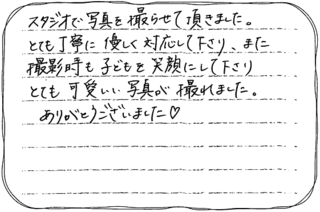 スタジオで写真を撮らせて頂きました。
とても丁寧に優しく対応して下さり、また
撮影時も子どもを笑顔にして下さり
とても可愛いい写真が撮れました。
ありがとうございました♡